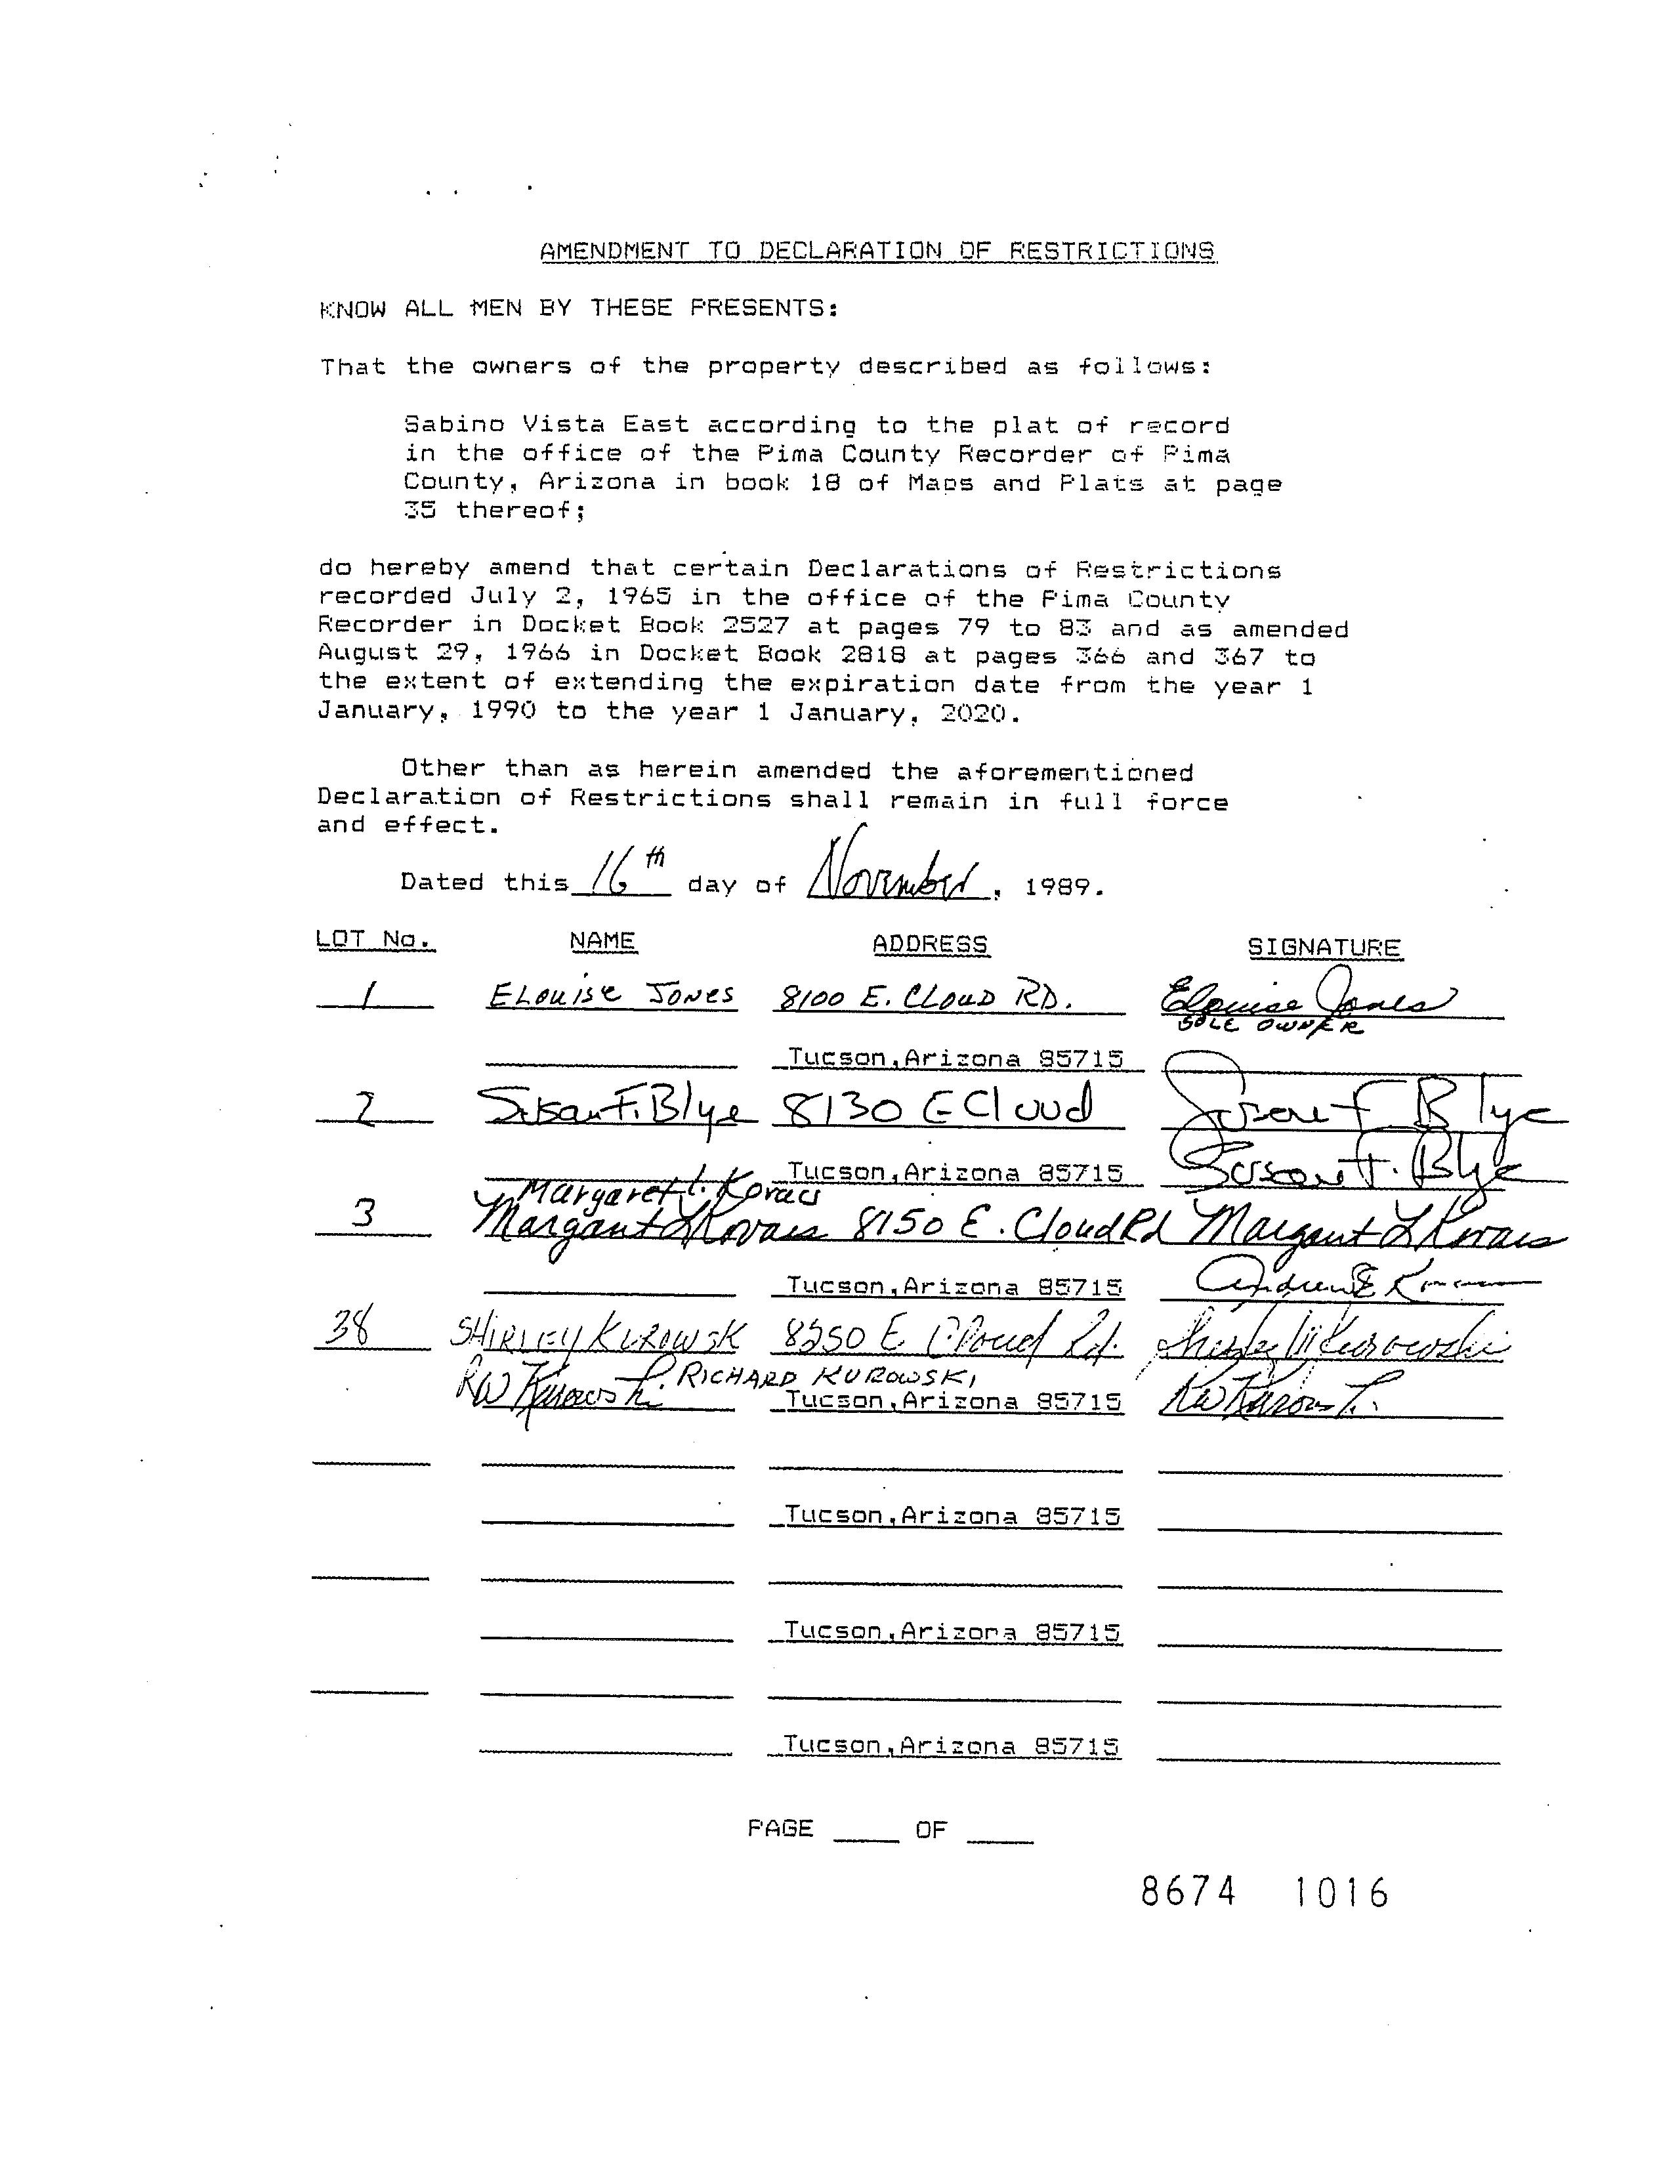 AMENDMENT TO DECLARATION OF RESTRICTIONS
KNOW ALL MEN BY THESE PRESENTS:
That the owners of the property described as follows:
Sabino Vista East according to the plat of record
in the office of the Pima County Recorder of Pima
County, Arizona in book 18 of Maps and Plats at page
35 thereof;
do hereby amend that certain Declarations of Restrictions
recorded July 2, 1965 in the office of the Pima County
Recorder in Docket Book 2527 at pages 79 to 83 and as amended
August 29, 1966 in Docket Book 2818 at pages 366 and 367 to
the extent of extending the expiration date from the year 1
January, 1990 to the year 1 January, 2020.
Other than as herein amended the aforementioned
Declaration of Restrictions shall remain in full force
and effect.
Dated this 16th day of November, 1989.
LOT No. NAME ADDRESS SIGNATURE
1 ELOUISE JONES 8100 E. CLOUD RD. Elouise Jones
SOLE OWNER
Tucson, Arizona 85715
2 Susan F. Blye 8130 E Cloud Susan F Blye
Tucson, Arizona 85715 Susan F. Blye
Margaret L. Kovacs
3 Margaret L Kovacs 8150 E. Cloud Rd Margaret L Kovacs
Tucson, Arizona 85715 Andrew E
38 SHIRLEY KUROWSK E Cloud Rd. Shirley Kurowski
RW Kurowski RICHARD KUROWSKI
Tucson, Arizona 85715 RW Kurowski
Tucson, Arizona 85715
Tucson, Arizona 85715
Tucson, Arizona 85715
PAGE ____ OF ____
8674 1016